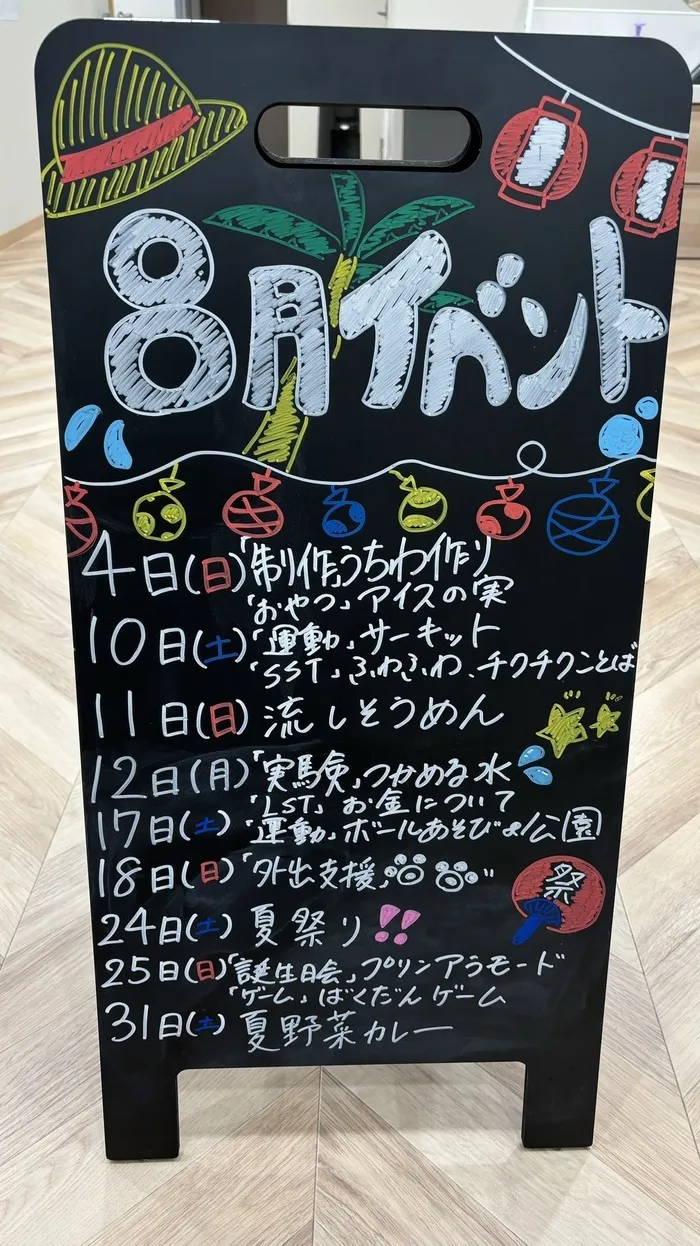 8月イベント
4日(日)「制作」うちわ作り
「おやつ」アイスの実
10日(土)「運動」サーキット
「SST」ふわふわ、チクチクことば
11日(日)流しそうめん
12日(月)「実験」つかめる水
「LST」お金について
17日(土)「運動」ボールあそびor公園
18日(日)「外出支援」
24日(土)夏祭り!!
祭
25日(日)「誕生日会」プリンアラモード
「ゲーム」ばくだんゲーム
31日(土)夏野菜カレー